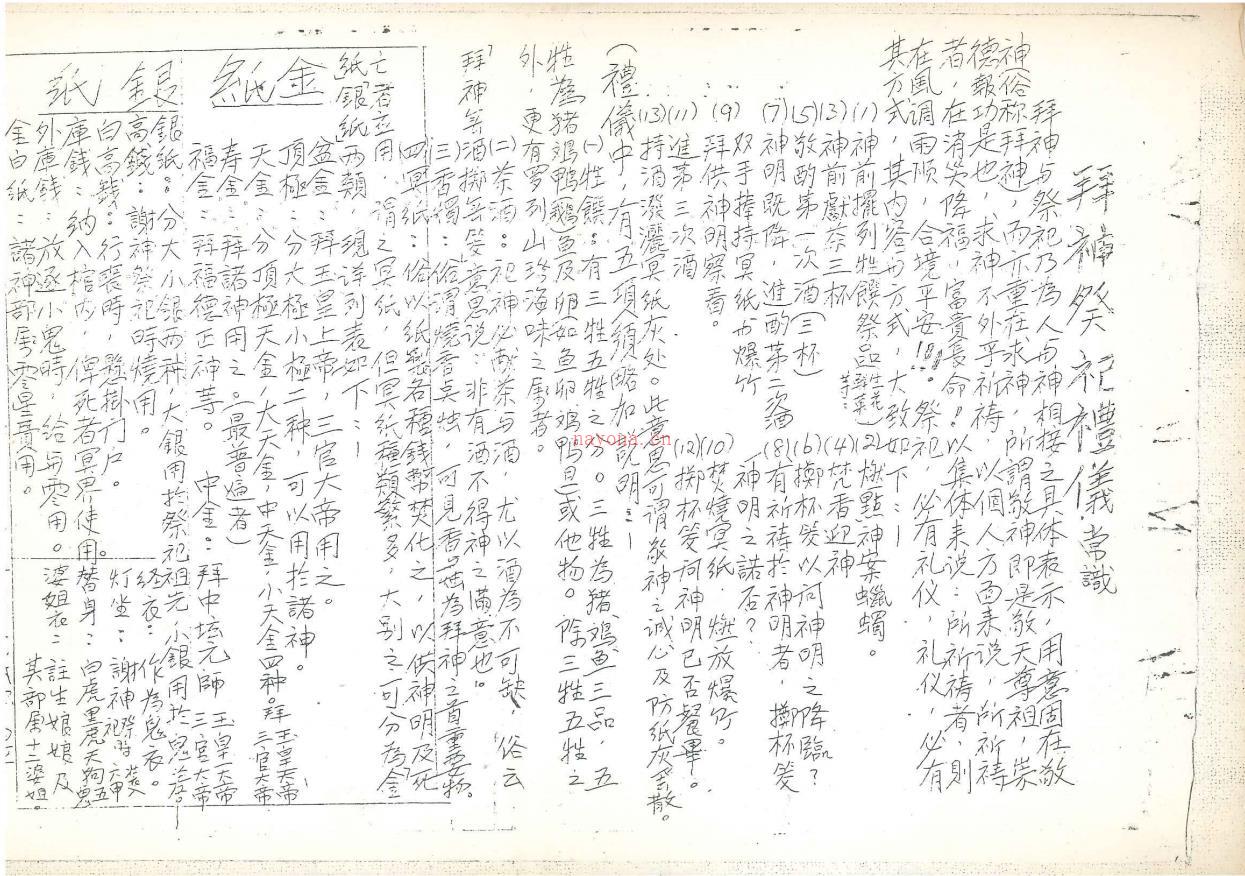 拜神祭祀禮儀常識
拜神与祭祀乃為人与神相接之具体表示，用意固在敬
神俗称拜神，而亦重在求神，所謂敬神即是敬天尊祖，崇
德報功是也，求神不外乎祈祷，以個人方面来说，所祈祷
者，在消災降福，富貴長命！以集体来说：所祈祷者，則
在風調雨顺，合境平安!!。祭祀，必有礼仪，礼仪，必有
其方式，其内容与方式，大致如下：—
(1)神前擺列牲饌祭品(生花等…) (2)燃點神案蠟蠋。
(3)神前献茶三杯 (4)焚香迎神
(5)敬酌第一次酒(三杯) (6)擲杯筊以问神明之降臨？
(7)神明既降，進酌苐二次酒 (8)有祈祷於神明者，擲杯筊
神明之諾否？
(9)双手捧持冥纸与爆竹
拜供神明察看。 (10)焚燒冥纸，燃放爆竹。
(11)進苐三次酒 (12)掷杯筊问神明已否餐畢。
(13)持酒潑灑冥纸灰处。此意思可谓敬神之诚心及防纸灰飛散。
(禮儀中，有五項須略加說明：—
(一)牲饌：有三牲五牲之分。三牲為猪鸡鱼三品，五
牲為猪鸡鴨(鵝)鱼及卵如鱼卵鸡鴨旦)或他物。除三牲五牲之
外，更有罗列山珍海味之属者。
(二)茶酒：祀神必献茶与酒，尤以酒為不可缺，俗云
「拜神無酒擲無筊」意思说：非有酒不得神之满意也。
(三)香燭：俗谓燒香点烛，可見香烛為拜神之首重要物。
(四)冥纸：俗以纸製各種錢幣焚化之，以供神明及死
亡者应用，谓之冥纸，但冥纸種類繁多，大别之可分為金
紙「銀纸」两類，現详列表如下：—
金紙
盆金：拜玉皇上帝，三官大帝用之。
頂極：分大極小極二种，可以用於諸神。
天金：分頂極天金，大天金，中天金，小天金四种。拜玉皇大帝 三官大帝
寿金：拜諸神用之。(最普遍者)
福金：拜福德正神等。
中金：拜中坛元師 玉皇大帝 三官大帝
銀紙
銀紙：分大小銀两种，大銀用於祭祀祖先，小銀用於鬼差。
高錢：謝神祭祀時燒用。
白高錢：行喪時，懸掛门户。
庫錢：納入棺内，俾死者冥界使用。
外庫錢：放逐小鬼時，给与零用。
金白紙：諸神部属零星賣用。
经衣：作為鬼衣。
灯坐：謝神祭祀時
替身：白虎黑虎天狗五鬼
婆姐衣：註生娘娘及
其部属十二婆姐。
nayona.cn